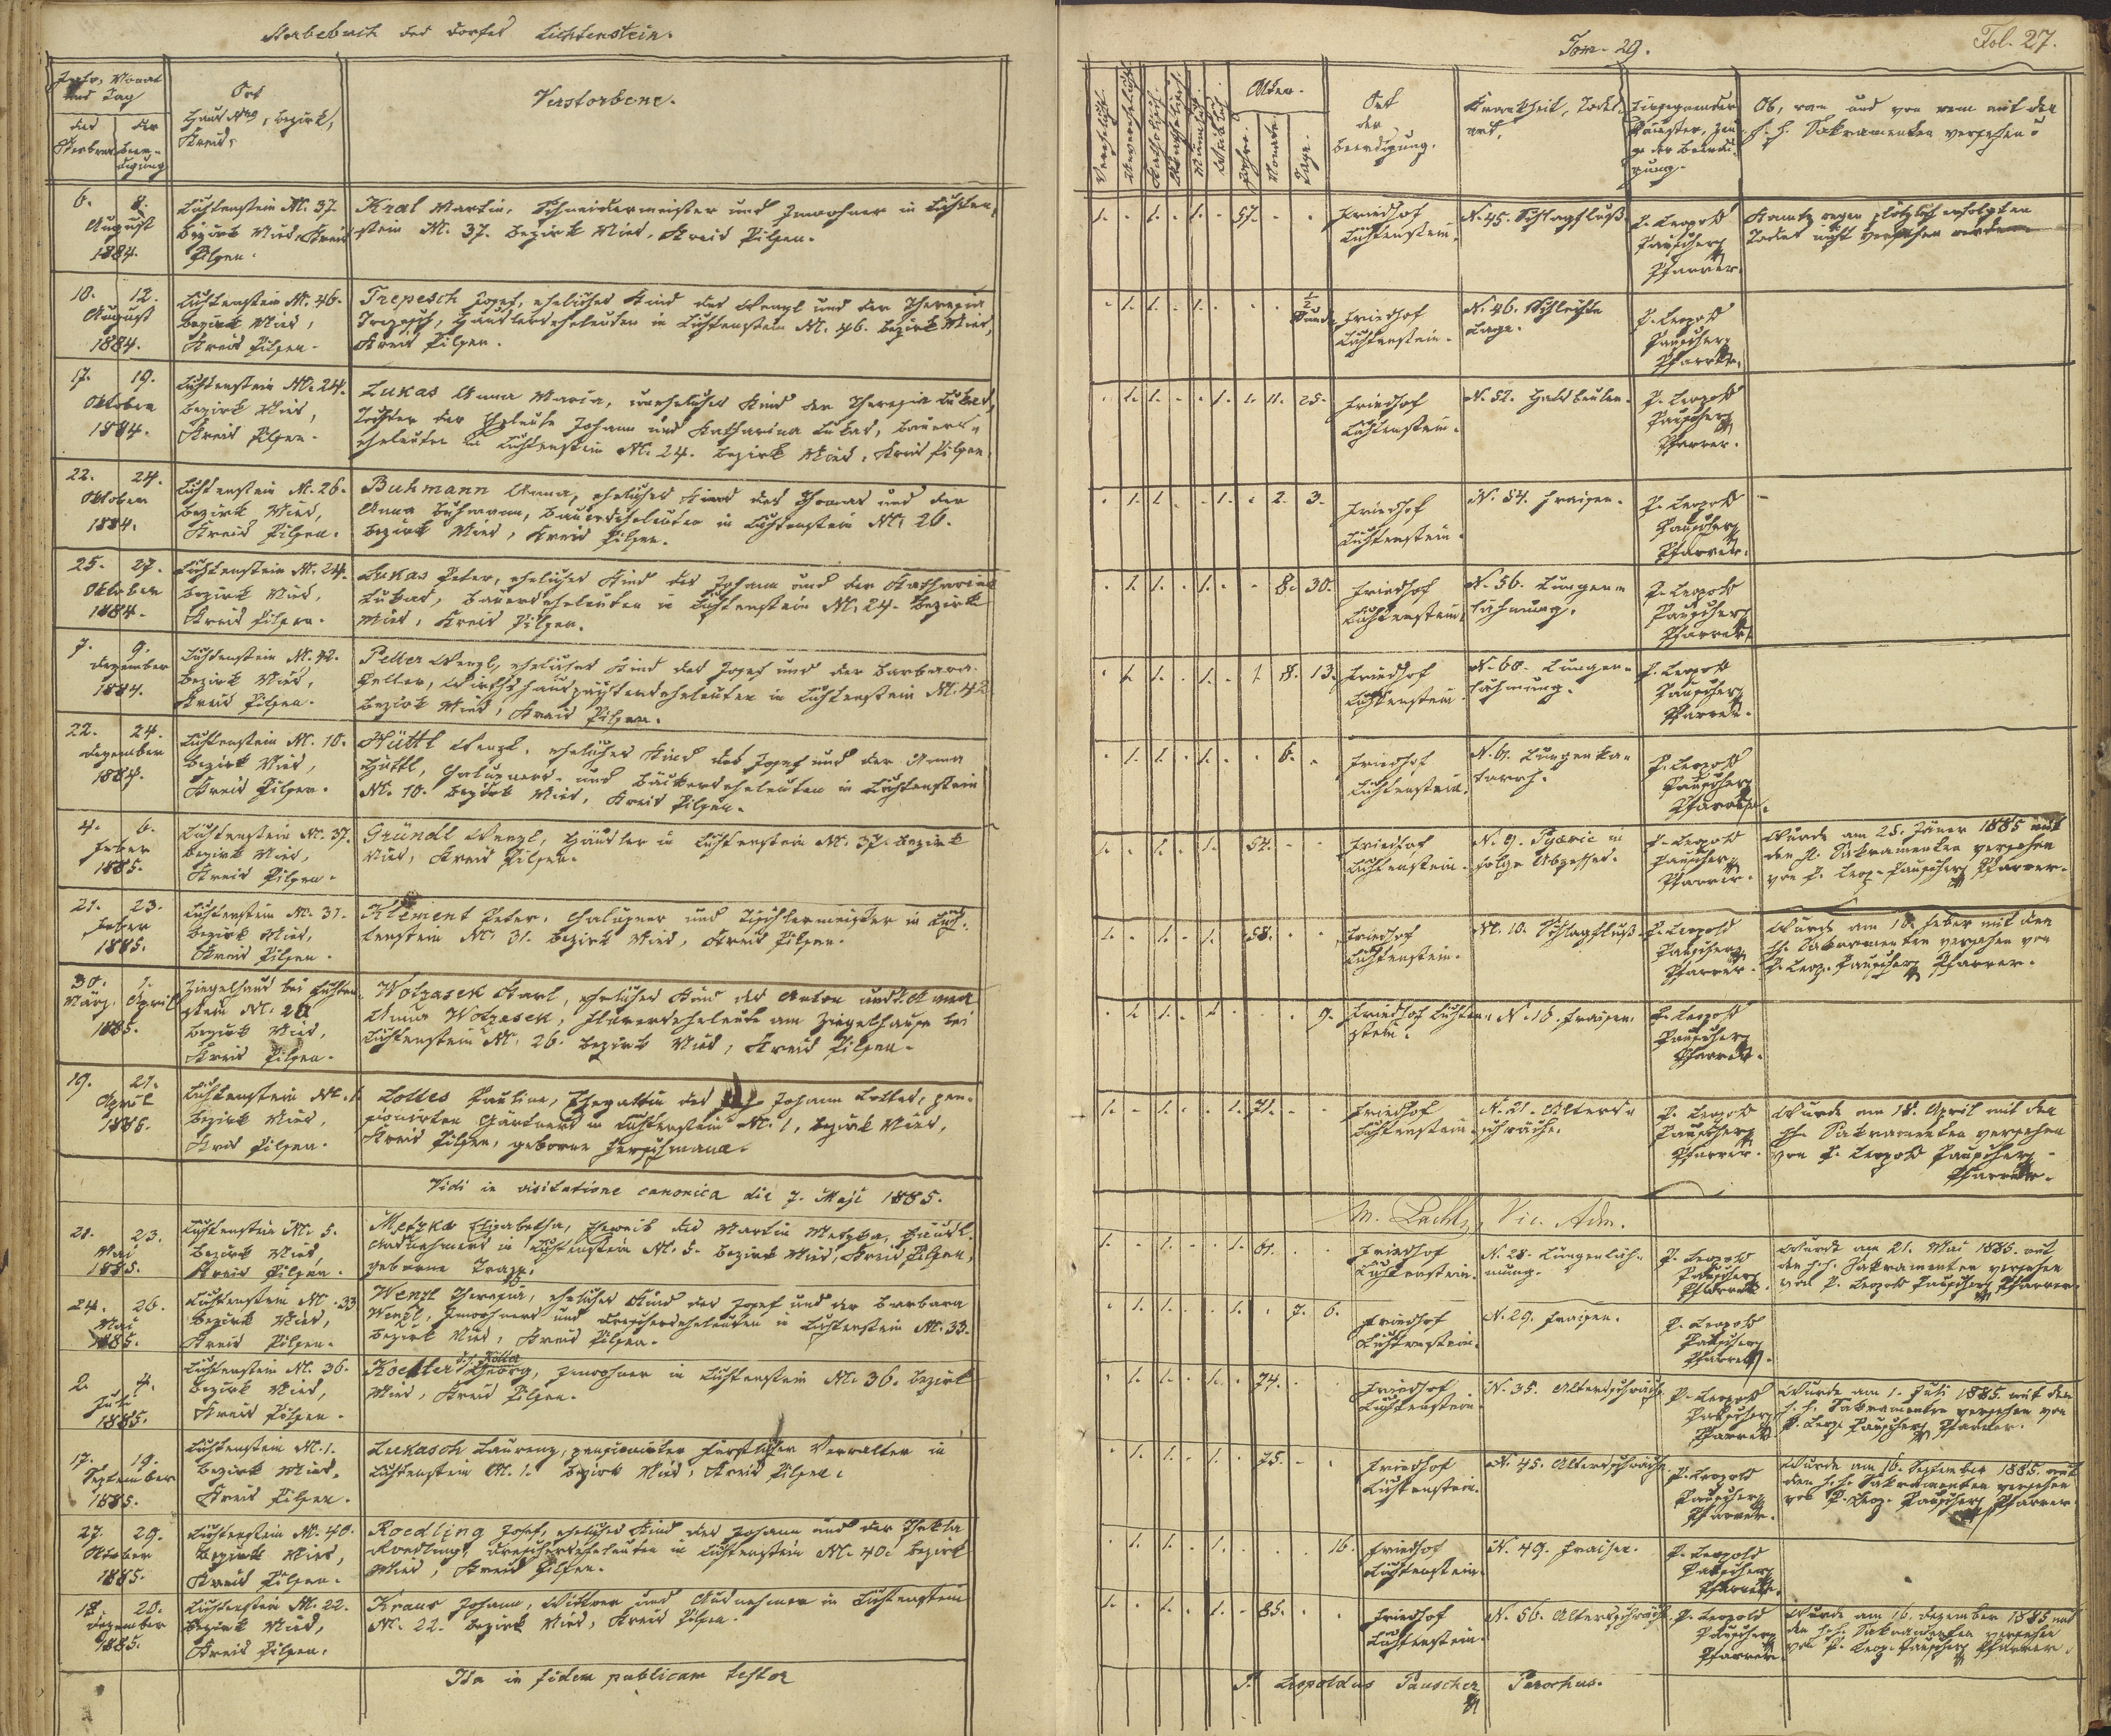 Sterbebuch des Dorfes Lichtenstein.
Tom. 29.
Fol. 27.
Jahr, Monat
und Tag
des
Sterbens
der
Beer-
digung
Ort
Haus Nro, Bezirk,
Kreis.
Verstorbene.
Verehelicht.
Unverehelicht.
Katholisch.
Männlich.
Weiblich.
Alter.
Jahre.
Monate.
Tage.
Ort
der
Beerdigung.
Krankheit, Todes-
art.
Eingesegnender
Priester, Zeu-
ge der Beerdi-
gung.
Ob, wann und von wem mit den
h. h. Sakramenten versehen?
6. 8.
August
1884.
Lichtenstein N. 37.
Bezirk Mies, Kreis
Pilsen.
Kral Martin, Schneidermeister und Inwohner in Lichten-
stein N. 37. Bezirk Mies, Kreis Pilsen.
1. - 1. - 1. - 57. - -
Friedhof
Lichtenstein.
N. 45. Schlagfluß.
P. Leopold
Pauscher
Pfarrer.
Konnte wegen plötzlich erfolgten
Todes nicht versehen werden
10. 12.
August
1884.
Lichtenstein N. 46.
Bezirk Mies,
Kreis Pilsen.
Trepesch Josef, eheliches Kind des Wenzl und der Theresia
Trepesch, Häuslerseheleuten in Lichtenstein N. 46. Bezirk Mies,
Kreis Pilsen.
- 1. 1. - 1. - - - 1/2 Stunde
Friedhof
Lichtenstein.
N. 46. Schlechte
Lage.
P. Leopold
Pauscher
Pfarrer.
17. 19.
Oktober
1884.
Lichtenstein N. 24.
Bezirk Mies,
Kreis Pilsen.
Lukas Anna Maria, uneheliches Kind der Theresia Lukas,
Tochter der Eheleute Johann und Katharina Lukas, Bauers-
eheleuten in Lichtenstein N. 24. Bezirk Mies, Kreis Pilsen.
- 1. 1. - - 1. 1. 11. 25.
Friedhof
Lichtenstein.
N. 52. Halsbeulen.
P. Leopold
Pauscher
Pfarrer.
22. 24.
Oktober
1884.
Lichtenstein N. 26.
Bezirk Mies,
Kreis Pilsen.
Buhmann Anna, eheliches Kind des Thomas und der
Anna Buhmann, Bauerseheleuten in Lichtenstein N. 26.
Bezirk Mies, Kreis Pilsen.
- 1. 1. - - 1. - 2. 3.
Friedhof
Lichtenstein.
N. 54. Fraisen.
P. Leopold
Pauscher
Pfarrer.
25. 27.
Oktober
1884.
Lichtenstein N. 24.
Bezirk Mies,
Kreis Pilsen.
Lukas Peter, eheliches Kind des Johann und der Katharina
Lukas, Bauerseheleuten in Lichtenstein N. 24. Bezirk
Mies, Kreis Pilsen.
- 1. 1. - 1. - - 8. 30.
Friedhof
Lichtenstein.
N. 56. Lungen-
lähmung.
P. Leopold
Pauscher
Pfarrer.
7. 9.
Dezember
1884.
Lichtenstein N. 42.
Bezirk Mies,
Kreis Pilsen.
Peller Wenzl, eheliches Kind des Josef und der Barbara
Peller, Wirthshauspächterseheleuten in Lichtenstein N. 42
Bezirk Mies, Kreis Pilsen.
- 1. 1. - 1. - 1. 8. 13.
Friedhof
Lichtenstein.
N. 60. Lungen-
lähmung.
P. Leopold
Pauscher
Pfarrer.
22. 24.
Dezember
1884.
Lichtenstein N. 10.
Bezirk Mies,
Kreis Pilsen.
Hüttl Wenzl, eheliches Kind des Josef und der Anna
Hüttl, Chalupners- und Bäckerseheleuten in Lichtenstein
N. 10. Bezirk Mies, Kreis Pilsen.
- 1. 1. - 1. - - 6. -
Friedhof
Lichtenstein.
N. 61. Lungenka-
tarrh.
P. Leopold
Pauscher
Pfarrer.
4. 6.
Feber
1885.
Lichtenstein N. 37.
Bezirk Mies,
Kreis Pilsen.
Gründl Wenzl, Häusler in Lichtenstein N. 37. Bezirk
Mies, Kreis Pilsen.
1. - 1. - 1. - 54. - -
Friedhof
Lichtenstein.
N. 9. Pyæmie in
folge Abszesses.
P. Leopold
Pauscher
Pfarrer.
Wurde am 25. Jäner 1885 mit
den hl. Sakramenten versehen
von P. Leop. Pauscher Pfarrer.
21. 23.
Feber
1885.
Lichtenstein N. 31.
Bezirk Mies,
Kreis Pilsen.
Klement Peter, Chalupner und Tischlermeister in Lich-
tenstein N. 31. Bezirk Mies, Kreis Pilsen.
1. - 1. - 1. - 58. - -
Friedhof
Lichtenstein.
N. 10. Schlagfluß.
P. Leopold
Pauscher
Pfarrer.
Wurde am 18. Feber mit den
hh. Sakramenten versehen von
P. Leop. Pauscher Pfarrer.
30. 1.
März. April
1885.
Ziegelhaus bei Lichten-
stein N. 26
Bezirk Mies,
Kreis Pilsen.
Wotzasek Karl, eheliches Kind des Anton und der
Anna Wotzasek, eheleute am Ziegelhause bei
Lichtenstein N. 26. Bezirk Mies, Kreis Pilsen.
- 1. 1. - 1. - - - 9.
Friedhof Lichten-
stein.
N. 16. Fraisen.
P. Leopold
Pauscher
Pfarrer.
19. 21.
April
1885.
Lichtenstein N. 1.
Bezirk Mies,
Kreis Pilsen.
Lottes Pauline, Ehegattin des Johann Lottes, pen-
sionirten Gärtners in Lichtenstein N. 1, Bezirk Mies,
Kreis Pilsen, geborne Herschmann.
1. - 1. - - 1. 71. - -
Friedhof
Lichtenstein.
N. 21. Alters-
schwäche.
P. Leopold
Pauscher
Pfarrer.
Wurde am 18. April mit den
hh. Sakramenten versehen
von P. Leopold Pauscher
Pfarrer.
Vidi in visitatione canonica die 7. Maji 1885.
Vic. Adm.
21. 23.
Mai
1885.
Lichtenstein N. 5.
Bezirk Mies,
Kreis Pilsen.
Metzka Elisabetha, Eheweib des Martin Metzka, Häusl.
Ausnehmers in Lichtenstein N. 5. Bezirk Mies, Kreis Pilsen,
geborne Trapp.
1. - 1. - - 1. 61. - -
Friedhof
Lichtenstein.
N. 28. Lungenläh-
mung.
P. Leopold
Pauscher
Pfarrer.
Wurde am 21. Mai 1885. mit
den h. h. Sakramenten versehen
von P. Leopold Pauscher Pfarrer.
24. 26.
Mai
1885.
Lichtenstein N. 33
Bezirk Mies,
Kreis Pilsen.
Wenzl Theresia, eheliches Kind des Josef und der Barbara
Wenzl, Inwohners und Drescherseheleuten in Lichtenstein N. 33.
Bezirk Mies, Kreis Pilsen.
- 1. 1. - - 1. - 7. 6.
Friedhof
Lichtenstein.
N. 29. Fraisen.
P. Leopold
Pauscher
Pfarrer.
2. 4.
Juli
1885.
Lichtenstein N. 36.
Bezirk Mies,
Kreis Pilsen.
Georg, Inwohner in Lichtenstein N. 36. Bezirk
Mies, Kreis Pilsen.
- 1. 1. - 1. - 74. - -
Friedhof
Lichtenstein.
N. 35. Altersschwäche
P. Leopold
Pauscher
Pfarrer.
Wurde am 1. Juli 1885. mit den
h. h. Sakramenten versehen von
P. Leop. Pauscher Pfarrer.
17. 19.
September
1885.
Lichtenstein N. 1.
Bezirk Mies,
Kreis Pilsen.
Lukasch Laurenz, pensionirter fürstlicher Verwalter in
Lichtenstein N. 1. Bezirk Mies, Kreis Pilsen.
- 1. 1. - 1. - 75. - -
Friedhof
Lichtenstein.
N. 45. Altersschwäche
P. Leopold
Pauscher
Pfarrer.
Wurde am 16. September 1885. mit
den h. h. Sakramenten versehen
von P. Leop. Pauscher Pfarrer.
27. 29.
Oktober
1885.
Lichtenstein N. 40.
Bezirk Mies,
Kreis Pilsen.
Roedling Josef, eheliches Kind des Johann und der Thekla
Roedling, Drescherseheleuten in Lichtenstein N. 40. Bezirk
Mies, Kreis Pilsen.
- 1. 1. - 1. - - - 16.
Friedhof
Lichtenstein.
N. 49. Fraisen.
P. Leopold
Pauscher
Pfarrer.
18. 20.
Dezember
1885.
Lichtenstein N. 22.
Bezirk Mies,
Kreis Pilsen.
Kraus Johann, Witwer und Ausnehmer in Lichtenstein
N. 22. Bezirk Mies, Kreis Pilsen.
1. - 1. - 1. - 85. - -
Friedhof
Lichtenstein.
N. 56. Altersschwäche
P. Leopold
Pauscher
Pfarrer.
Wurde am 16. Dezember 1885 mit
den h. h. Sakramenten versehen
von P. Leop. Pauscher Pfarrer.
Ita in fidem publicam testor
P. Leopoldus Pauscher Parochus.